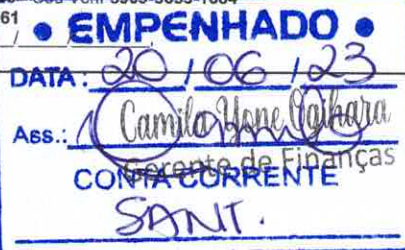 61
• EMPENHADO •
DATA: 20 / 06 / 23
Ass.: Camila Yone
Gerente de Finanças
CONTA CORRENTE
SANT.